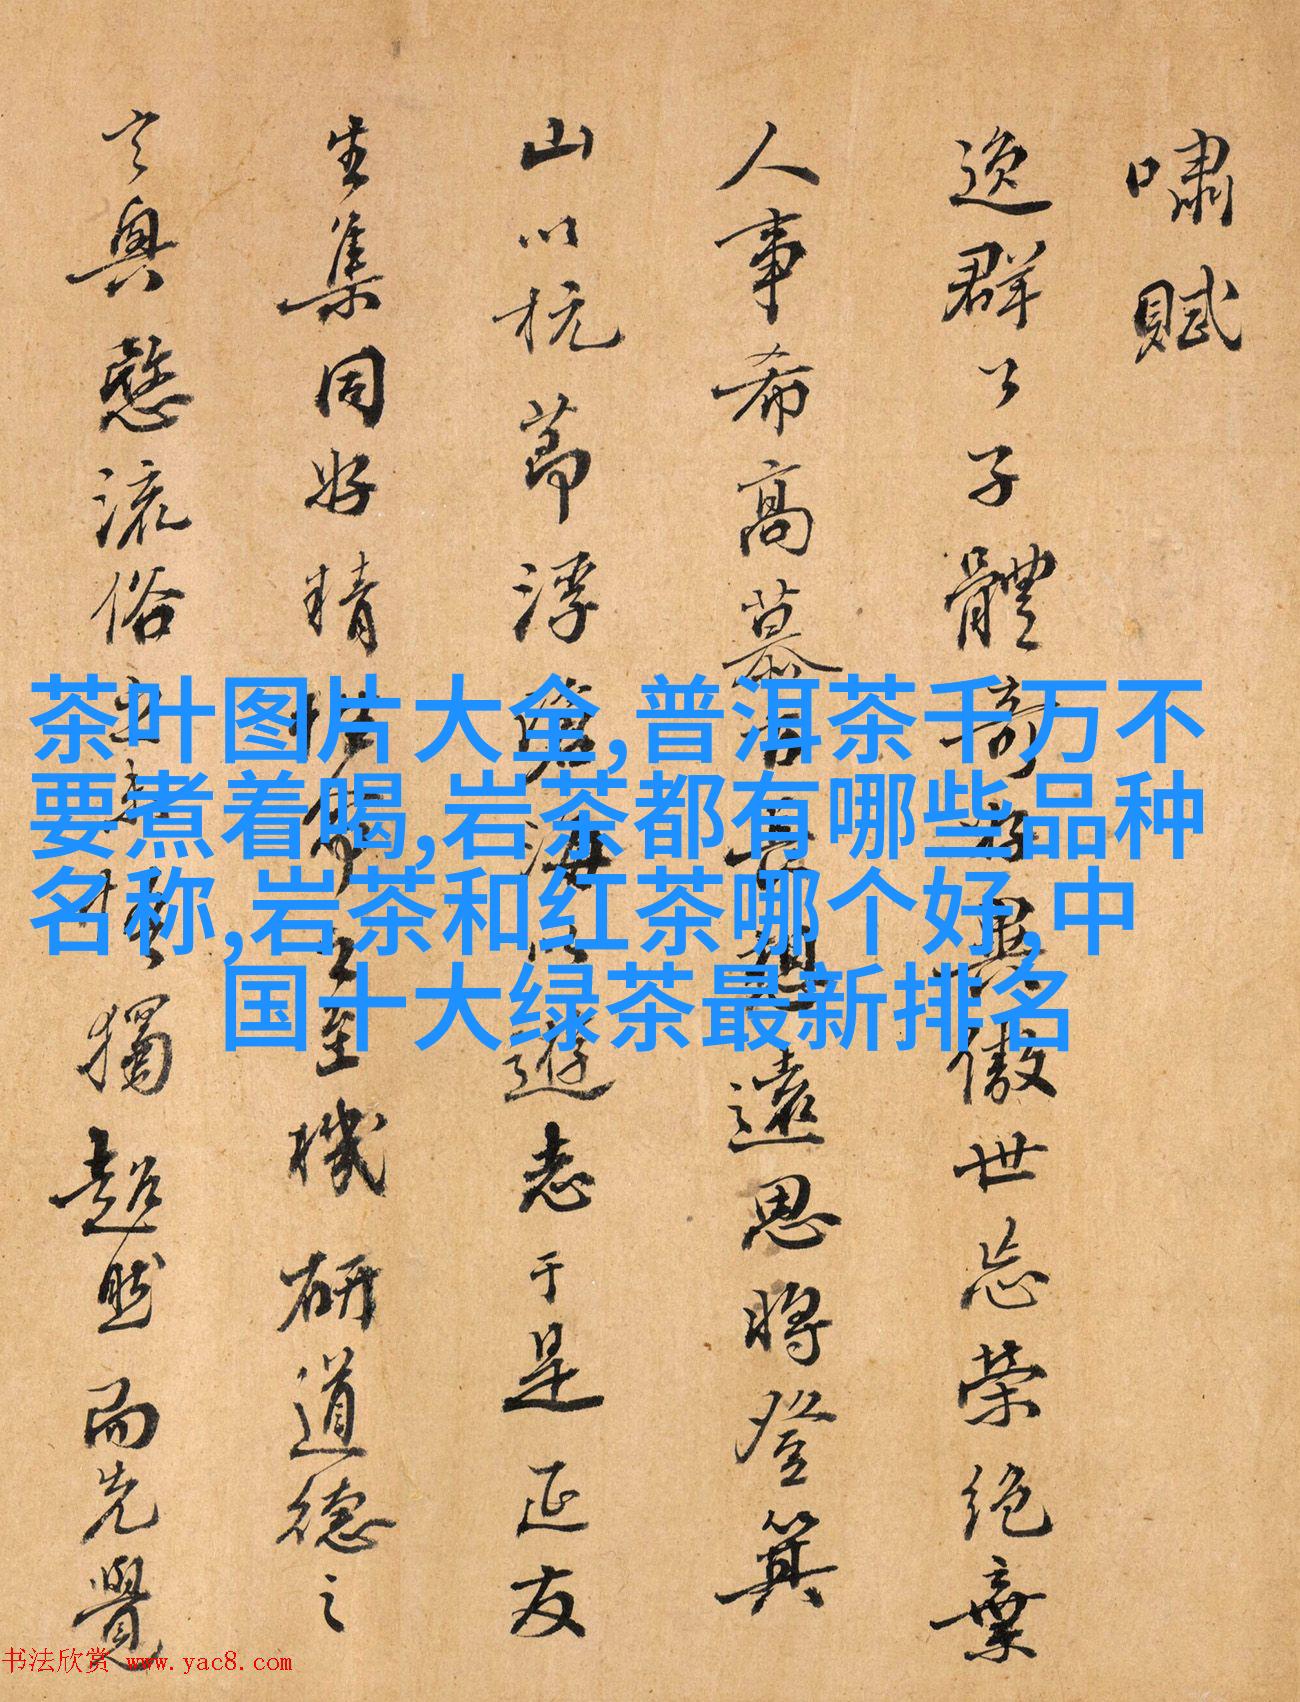 嘯賦
逸群公子體奇好異傲世忘榮絕棄
人事希高慕古長想遠思將登箕
山以抗節浮滄海以遊志于是延友
生集同好精性命之至機研道德之
玄奧愍流俗之未悟獨超然而先覺
茶叶图片大全,普洱茶千万不
要煮着喝,岩茶都有哪些品种
名称,岩茶和红茶哪个好,中
国十大绿茶最新排名
书法欣赏 www.yac8.com